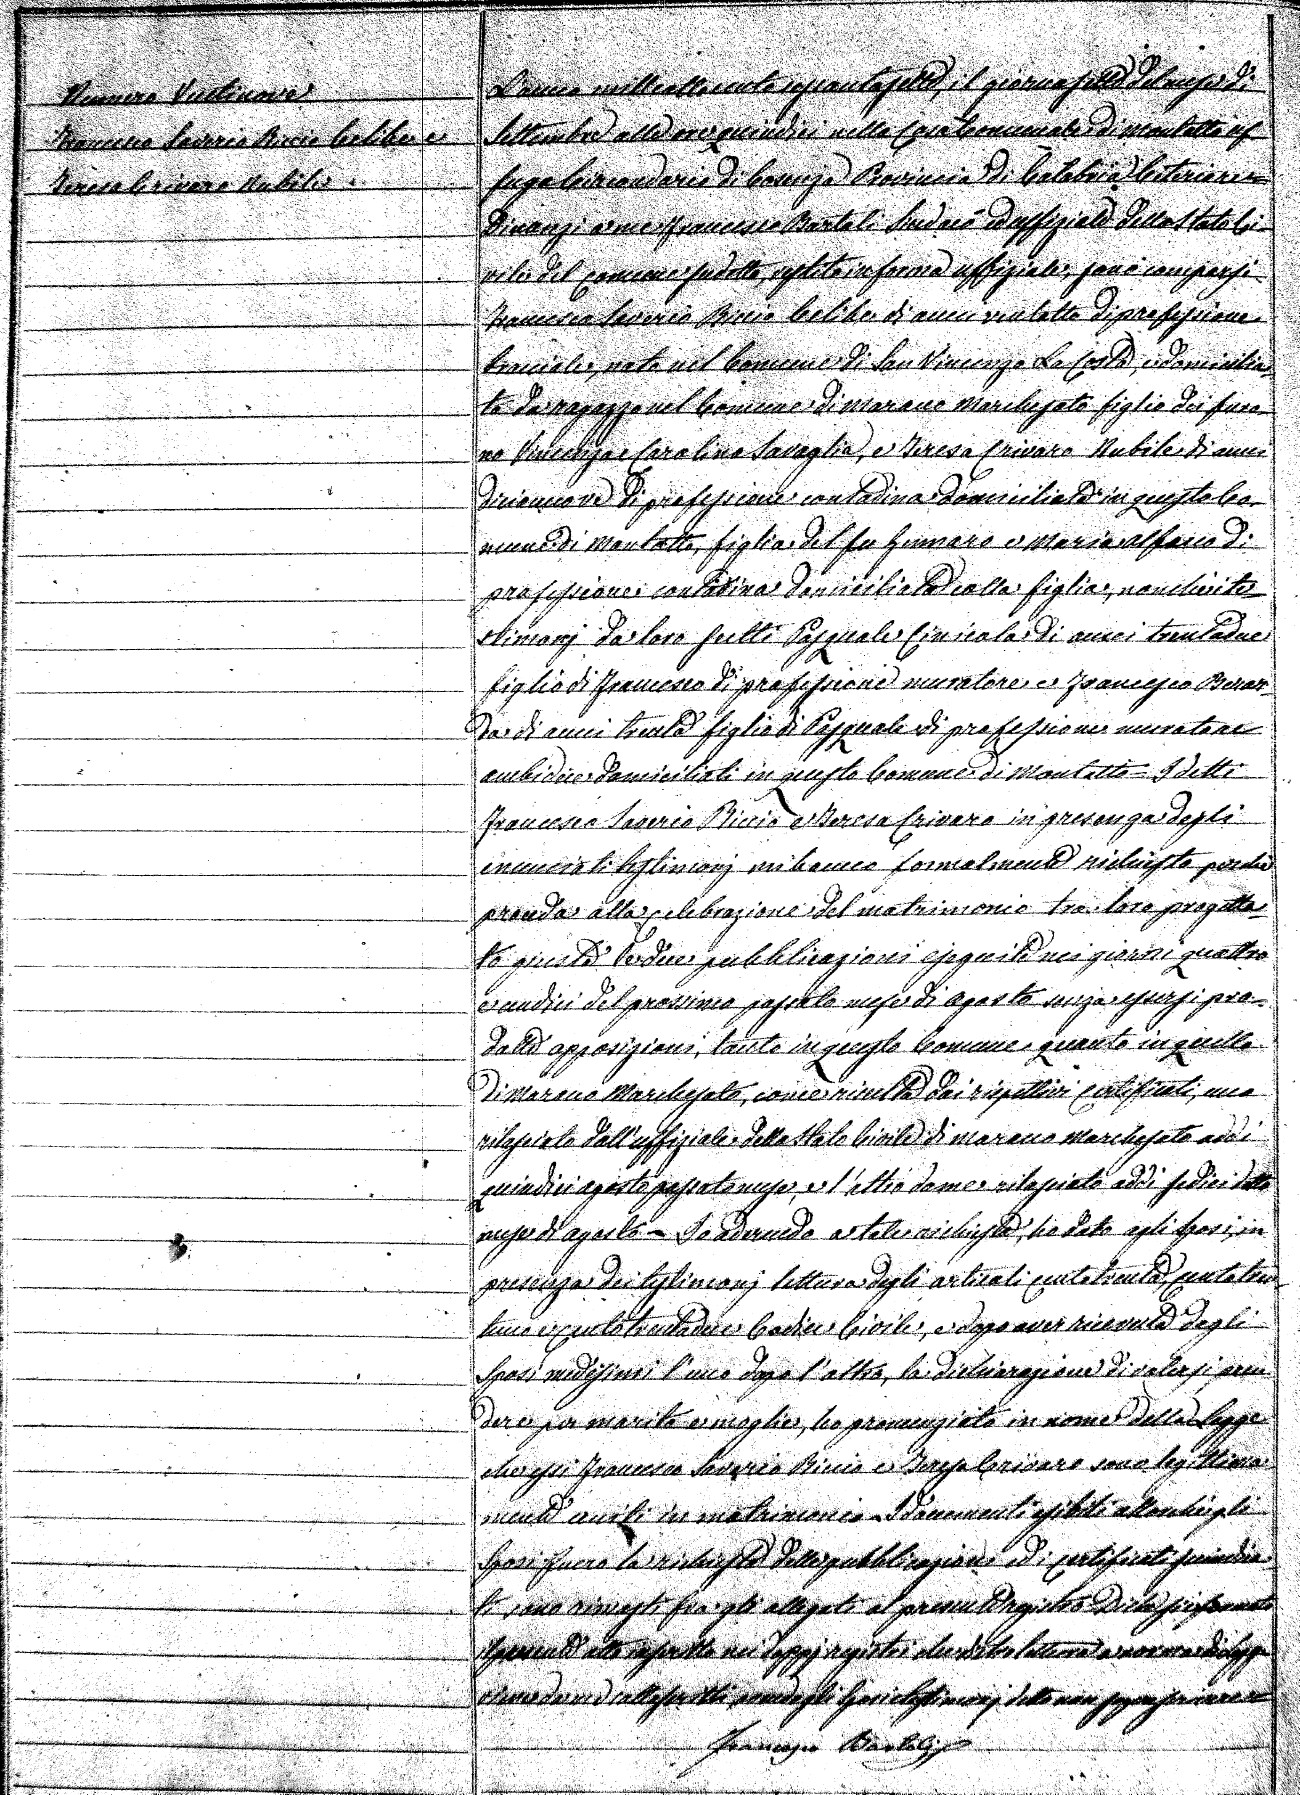 Numero Ventinove
Francesco Saverio Riccio Celibe e
Teresa Crivaro Nubile
L'anno mille ottocento sessantasette, il giorno sette del mese di
Settembre alle ore quindici nella Casa Comunale di Montalto Uf
fugo Circondario di Cosenza Provincia di Calabria Citeriore =
Dinanzi a me Francesco Bartoli Sindaco ed uffiziale dello Stato Ci-
vile del Comune sudetto, vestito in forma uffiziale, sono comparsi
Francesco Saverio Riccio Celibe di anni ventotto di professione
bracciale, nato nel Comune di San Vincenzo La Costa, e domicilia-
to da ragazzo nel Comune di Marano Marchesato figlio dei furo-
no Vincenzo e Carolina Savaglia, e Teresa Crivaro Nubile di anni
diciannove di professione contadina domiciliata in questo Co-
mune di Montalto, figlia del fu Gennaro e Maria Alfano di
professione contadina domiciliata colla figlia, nonchè i te-
stimonj da loro scelti Pasquale Cinicola di anni trentadue
figlio di Francesco di professione muratore e Francesco Berar
do di anni trenta figlio di Pasquale di professione muratore
ambidue domiciliati in questo Comune di Montalto = I detti
Francesco Saverio Riccio e Teresa Crivaro in presenza degli
enunciati testimonj mi hanno formalmente richiesto perchè
proceda alla celebrazione del matrimonio tra loro progetta-
to giusta le due pubblicazioni eseguite nei giorni quattro
e undici del prossimo passato mese di Agosto senza essersi pro-
dotte opposizioni, tanto in questo Comune quanto in quello
di Marano Marchesato, come risulta dai rispettivi certificati, uno
rilasciato dall'uffiziale dello Stato Civile di Marano Marchesato addì
quindici agosto passato mese, e l'altro da me rilasciato addì sedici detto
mese di agosto = Io aderendo a tale richiesta, ho dato agli Sposi, in
presenza dei testimonj lettura degli articoli centotrenta, centotren-
tuno e centotrentadue Codice Civile, e dopo aver ricevuta dagli
Sposi medesimi l'uno dopo l'altro, la dichiarazione di volersi pren
dere per marito e moglie, ho pronunziato in nome della Legge
che essi Francesco Saverio Riccio e Teresa Crivaro sono legittima
mente uniti in matrimonio = I documenti esibiti gli
Sposi furo la richiesta delle pubblicazioni ed i certificati suindica
ti sono rimasti fra gli allegati al presente registro Di che si è formato
il presente atto inscritto nei doppj registri che dato lettura a norma di legge
da me sottoscritto, gli Sposi e testimonj detto non sapere scrivere
Francesco Bartoli